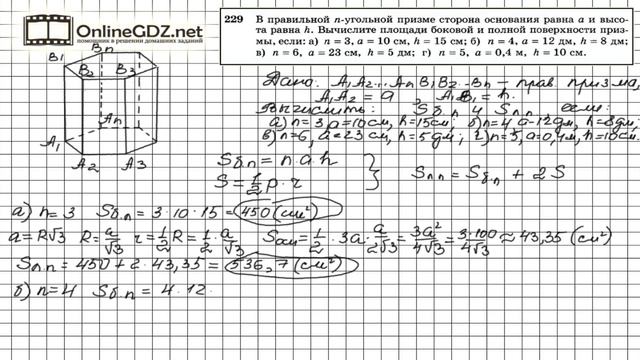 OnlineGDZ.net
помощник в решении домашних заданий
229 В правильной n-угольной призме сторона основания равна a и высо-
та равна h. Вычислите площади боковой и полной поверхности приз-
мы, если: а) n = 3, a = 10 см, h = 15 см; б) n = 4, a = 12 дм, h = 8 дм;
в) n = 6, a = 23 см, h = 5 дм; г) n = 5, a = 0,4 м, h = 10 см.
B1 Bn
B2 B3
An
A1
A2 A3
Дано: A1A2...An B1B2...Bn – прав. призма,
A1A2 = a A1B1 = h.
Вычислить: Sбп и Sпп если:
а) n=3, a=10см, h=15см; б) n=4 a=12дм, h=8дм;
в) n=6, a=23см, h=5дм; г) n=5, a=0,4м, h=10см.
Sбп = n·a·h
S = 1/2 p·r
Sпп = Sбп + 2S
а) n=3 Sбп = 3·10·15 = 450 (см²)
a=R√3 R=a/√3 r=1/2R=1/2·a/√3 Sосн=1/2·3a·a/2√3=3a²/4√3=3·100/4√3≈43,35(см²)
Sпп = 450+2·43,35 = 536,7 (см²)
б) n=4 Sбп = 4·12·